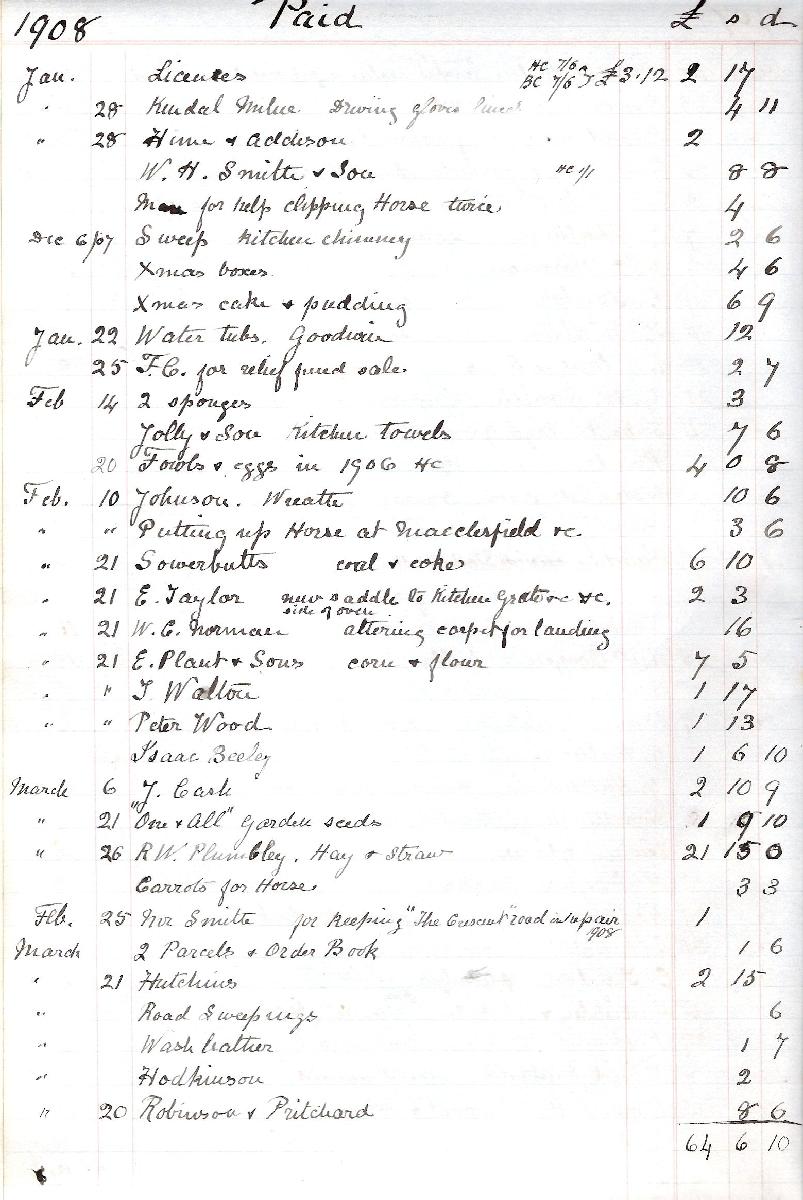 1908 Paid £ s d
Jan. Licences HC 7/6 BC 7/6 } £3.12 2 17
" 28 Kendal Milne Driving gloves lined 4 11
" 28 Hime & Addison 2
W. H. Smith & Son HC 8 8
Man for help clipping Horse twice 4
Dec 6/07 Sweep Kitchen chimney 2 6
Xmas boxes 4 6
Xmas cake & pudding 6 9
Jan. 22 Water tubs. Goodwin 12
25 F.C. for relief fund sale. 2 7
Feb 14 2 sponges 3
Jolly & Son Kitchen towels 7 6
20 Fowls & eggs in 1906 HC 4 0 8
Feb. 10 Johnson. Wreath 10 6
" " Putting up Horse at Macclesfield &c. 3 6
" 21 Sowerbutts coal & coke 6 10
" 21 E. Taylor new saddle to Kitchen Grate &c &c. 2 3
side of oven
" 21 W. E. Norman altering carpet for landing 16
" 21 E. Plant & Sons corn & flour 7 5
" " J. Walton 1 17
" " Peter Wood 1 13
Isaac Beeley 1 6 10
March 6 J. Cash 2 10 9
" 21 "One & All" Garden seeds 1 9 10
" 26 R W. Plumbley. Hay & Straw 21 15 0
Carrots for Horse. 3 3
Feb. 25 Smith for keeping "The Crescent" road in repair 1
1908
March 2 Parcels & Order Book 1 6
" 21 Hutchins 2 15
" Road Sweepings 6
" Wash leather 1 7
" Hodkinson 2
" 20 Robinson & Pritchard 8 6
64 6 10